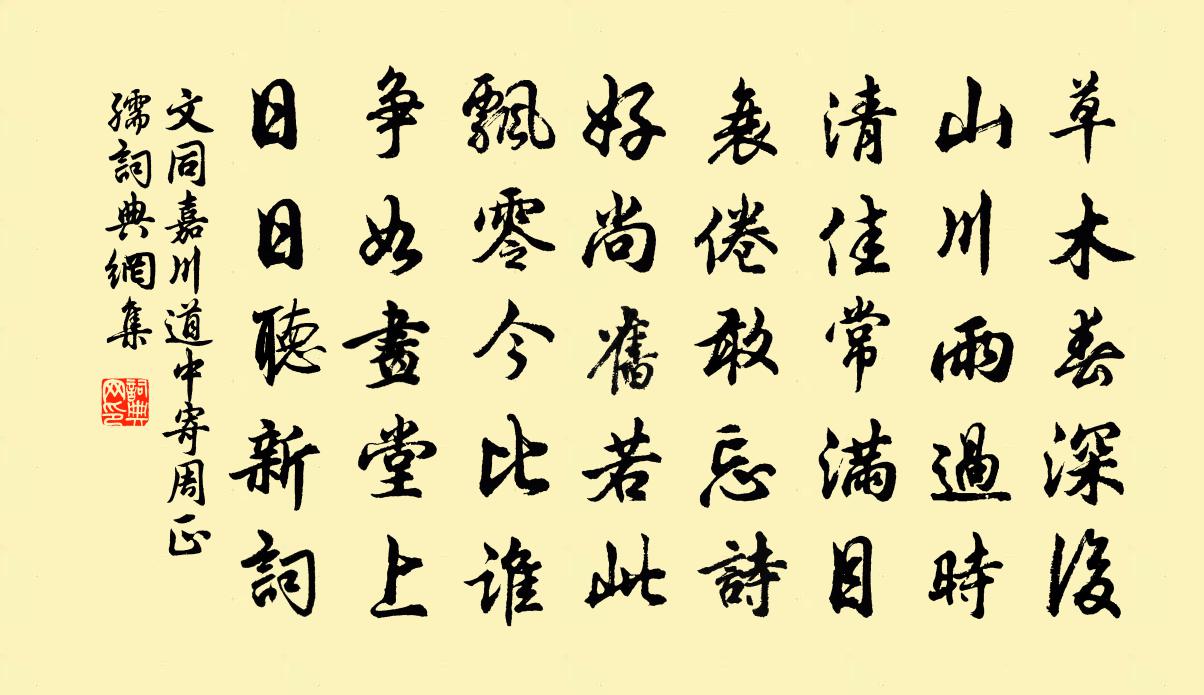 草木春深後
山川雨過時
清佳常滿目
衰倦敢忘詩
好尚舊若此
飄零今比誰
爭如畫堂上
日日聽新詞
文同嘉川道中寄周正
孺詞典網集
詞典
网印